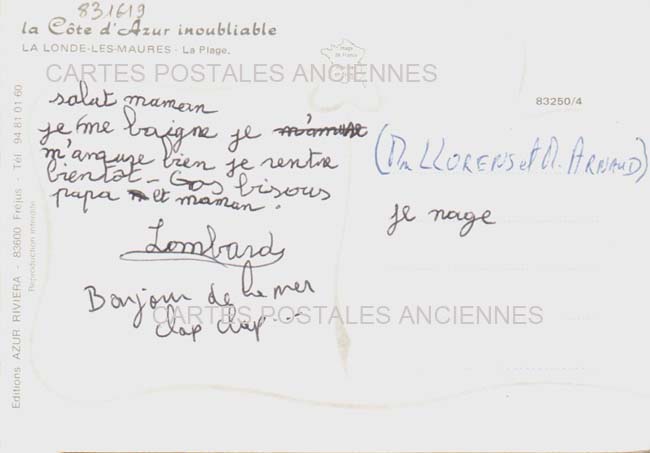 831619
la Côte d'Azur inoubliable
LA LONDE-LES-MAURES - La Plage.
CARTES POSTALES ANCIENNES
83250/4
salut maman
je me baigne je m'amuse
m'anguse bien je rentre
bientôt - Gos bisous
papa et maman.
Lombard
Bonjour de la mer
clap clap...
(Mr LLORENS et M. ARNAUD)
je nage
CARTES POSTALES ANCIENNES
Editions AZUR RIVIERA - 83600 Fréjus - Tél. 94 81 01 60
Reproduction interdite
image de France